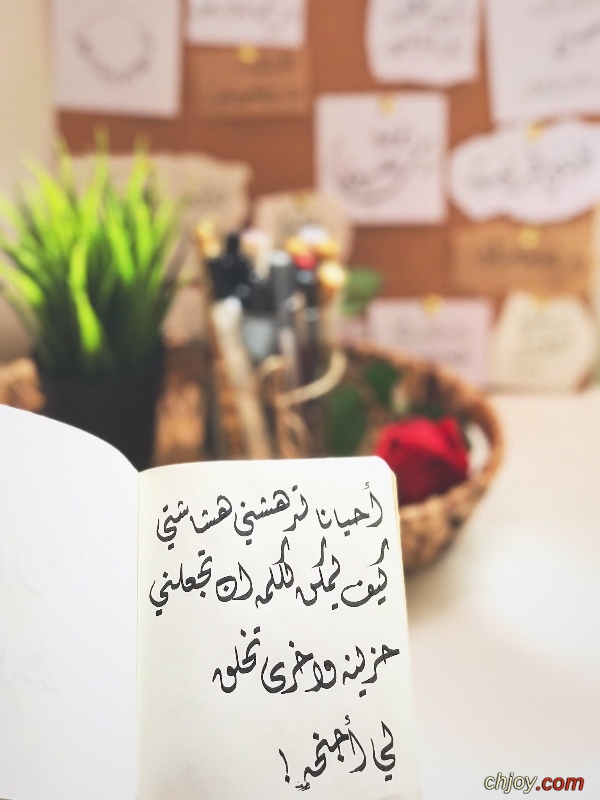 أحيانا تدهشني هشاشتي
كيف يمكن لكلمه ان تجعلني
حزينه واخرى تخلق
لي أجنحةٍ !
chjoy.com